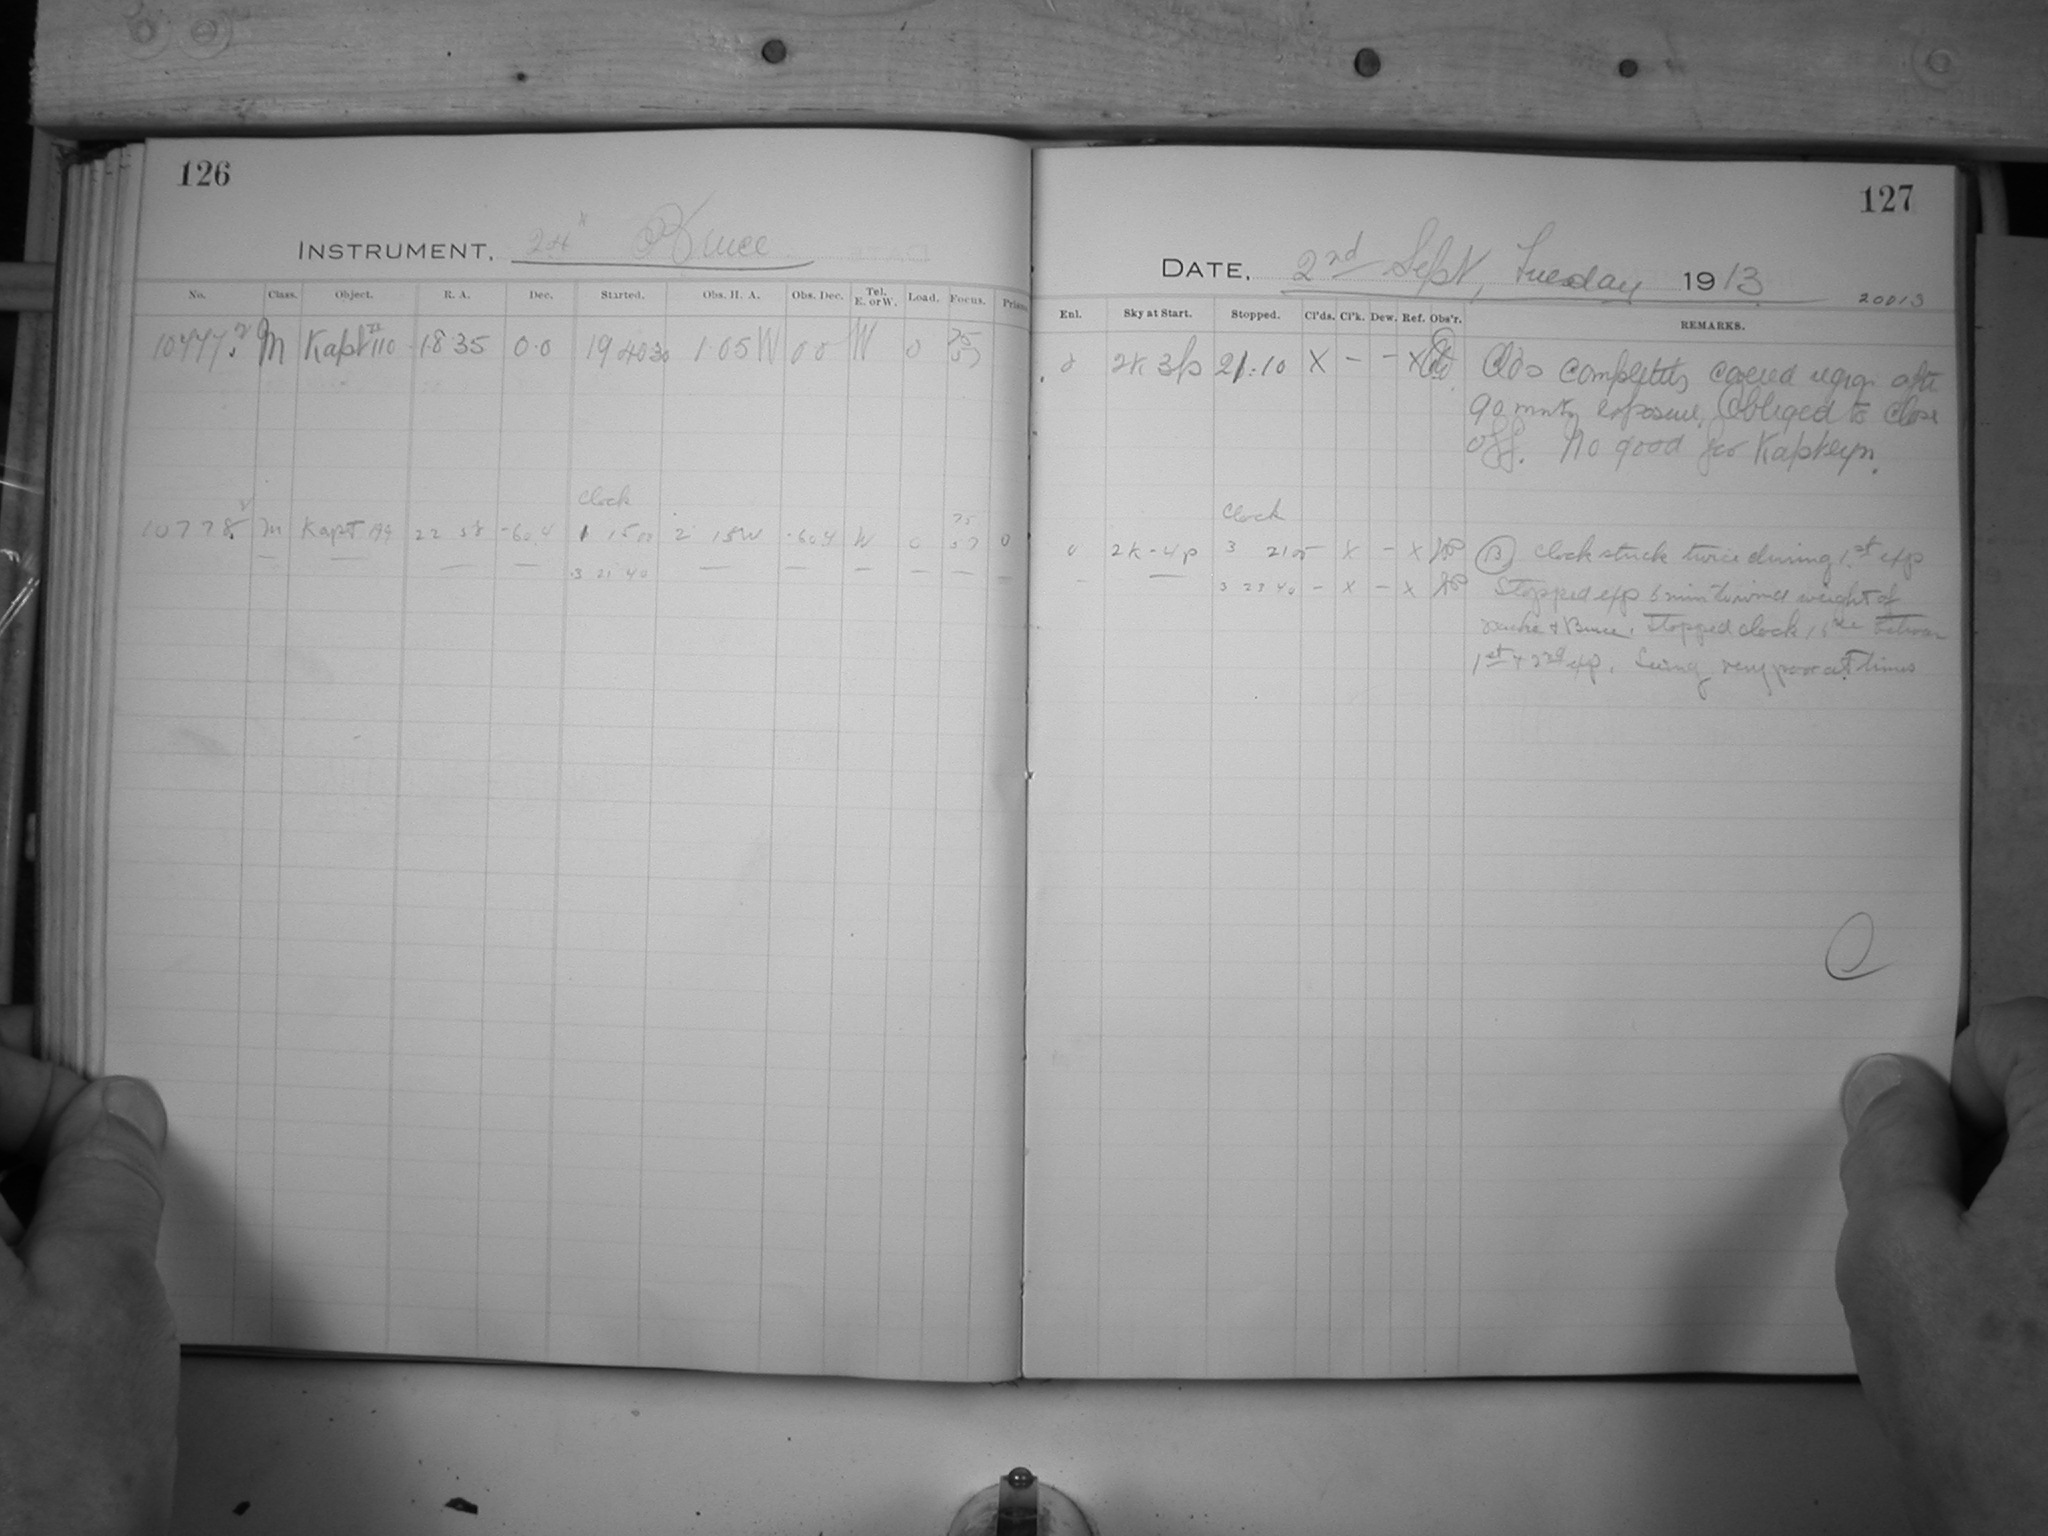 126
INSTRUMENT, 24" Bruce
No. Class. Object. R. A. Dec. Started. Obs. H. A. Obs. Dec. Tel. E. or W. Load. Focus. Prism
M Kapt 110 18 35 0.0 19 40 30 1.05 W 0 0 W 0
Clock
10778 M Kapt 22 58 -60.4 1 15 00 2 15 W -60.4 W 0 0
3 21 40
127
DATE, 2nd Sept, Tuesday 1913
20013
Enl. Sky at Start. Stopped. Cl'ds. Cl'k. Dew. Ref. Obs'r. REMARKS.
0 2K 3p 21.10 X - - X Clds completely covered region after
90 mnts exposure, Obliged to close
off. No good for Kapteyn.
Clock
0 2K-4p 3 21 05 X - X B Clock stuck twice during 1st exp
3 23 40 - X - X Stopped exp 5 min to wind weight of
& Bruce. Stopped clock between
1st & 2nd exp. Seeing very poor at times